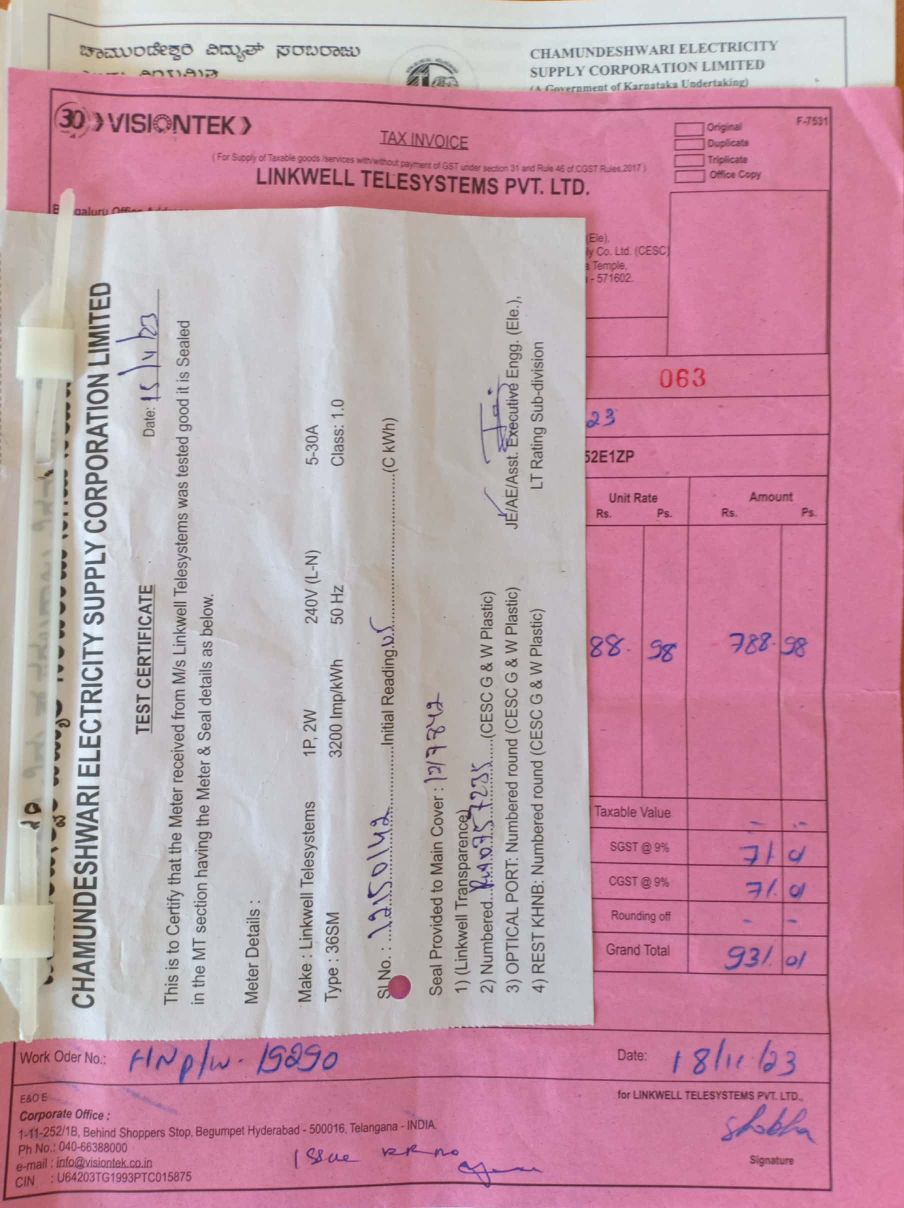 ಚಾಮುಂಡೇಶ್ವರಿ ವಿದ್ಯುತ್ ಸರಬರಾಜು
CHAMUNDESHWARI ELECTRICITY
SUPPLY CORPORATION LIMITED
(A Government of Karnataka Undertaking)
30 VISIONTEK
TAX INVOICE
F-7531
Original
Duplicate
Triplicate
Office Copy
( For Supply of Taxable goods /services with/without payment of GST under section 31 and Rule 46 of CGST Rules, 2017 )
LINKWELL TELESYSTEMS PVT. LTD.
(Ele).
Co. Ltd. (CESC)
Temple,
- 571602.
063
23
52E1ZP
Unit Rate
Amount
Rs. Ps. Rs. Ps.
88. 98 788. 98
Taxable Value - -
SGST @ 9% 71 01
CGST @ 9% 71. 01
Rounding off - -
Grand Total 931. 01
CHAMUNDESHWARI ELECTRICITY SUPPLY CORPORATION LIMITED
Date: 15/4/23
TEST CERTIFICATE
This is to Certify that the Meter received from M/s Linkwell Telesystems was tested good it is Sealed
in the MT section having the Meter & Seal details as below.
Meter Details :
Make : Linkwell Telesystems 1P, 2W 240V (L-N) 5-30A
Type : 36SM 3200 Imp/kWh 50 Hz Class: 1.0
Sl.No. : 12250142 Initial Reading (C kWh)
Seal Provided to Main Cover : 1217842
1) (Linkwell Transparence)
2) Numbered (CESC G & W Plastic)
3) OPTICAL PORT: Numbered round (CESC G & W Plastic)
4) REST KHNB: Numbered round (CESC G & W Plastic)
JE/AE/Asst. Executive Engg. (Ele.),
LT Rating Sub-division
Work Oder No.: HNP/W-19290
Date: 18/11/23
E&O E
Corporate Office :
1-11-252/1B, Behind Shoppers Stop, Begumpet Hyderabad - 500016, Telangana - INDIA.
Ph No.: 040-66388000
e-mail : info@visiontek.co.in
CIN : U64203TG1993PTC015875
Issue RR no
for LINKWELL TELESYSTEMS PVT. LTD.,
Shobha
Signature